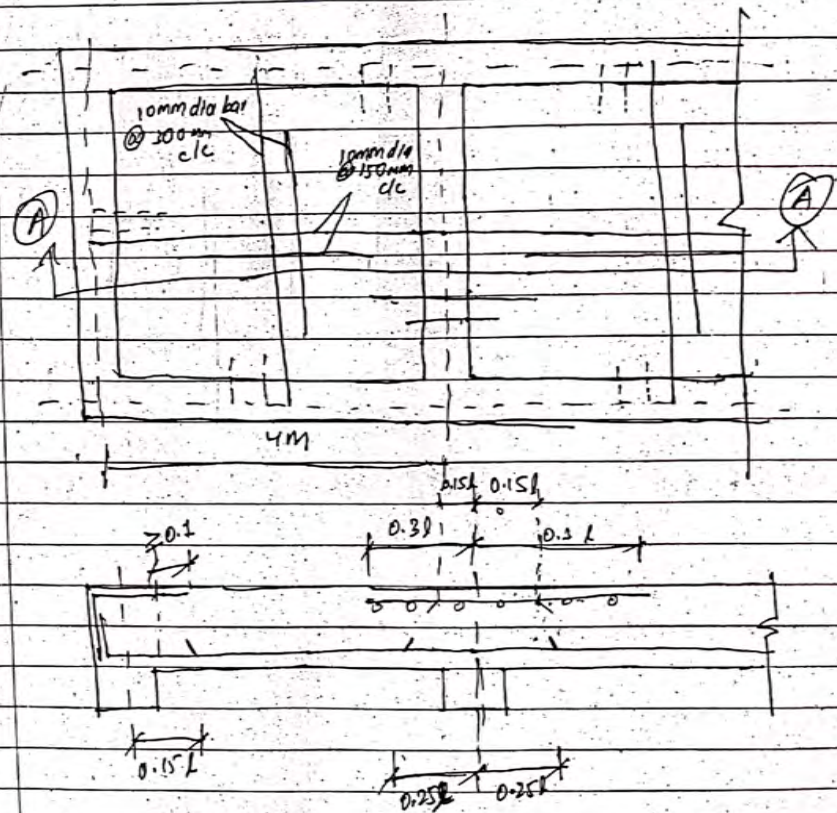 10mm dia bar
@ 300mm
c/c
10mm dia
@ 150mm
c/c
A
A
4M
0.15l 0.15l
≥0.1
0.3l
0.3 l
0.15l
0.25l
0.25l